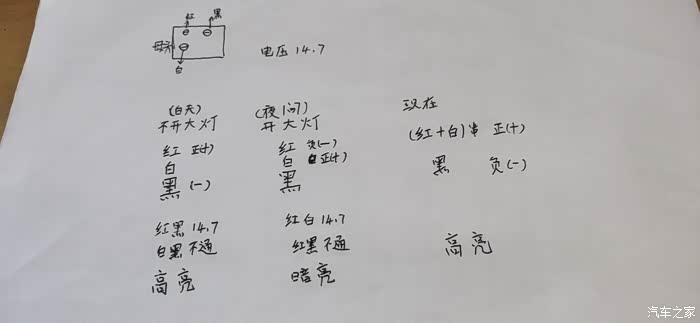 红 黑
白
电压 14.7
(白天) (夜间) 现在
不开大灯 开大灯
红 正(+) 红 负(-) (红+白)串 正(+)
白 白 正(+)
黑 (-) 黑 黑 负(-)
红黑 14.7 红白 14.7
白黑不通 红黑不通
高亮 暗亮 高亮
汽车之家